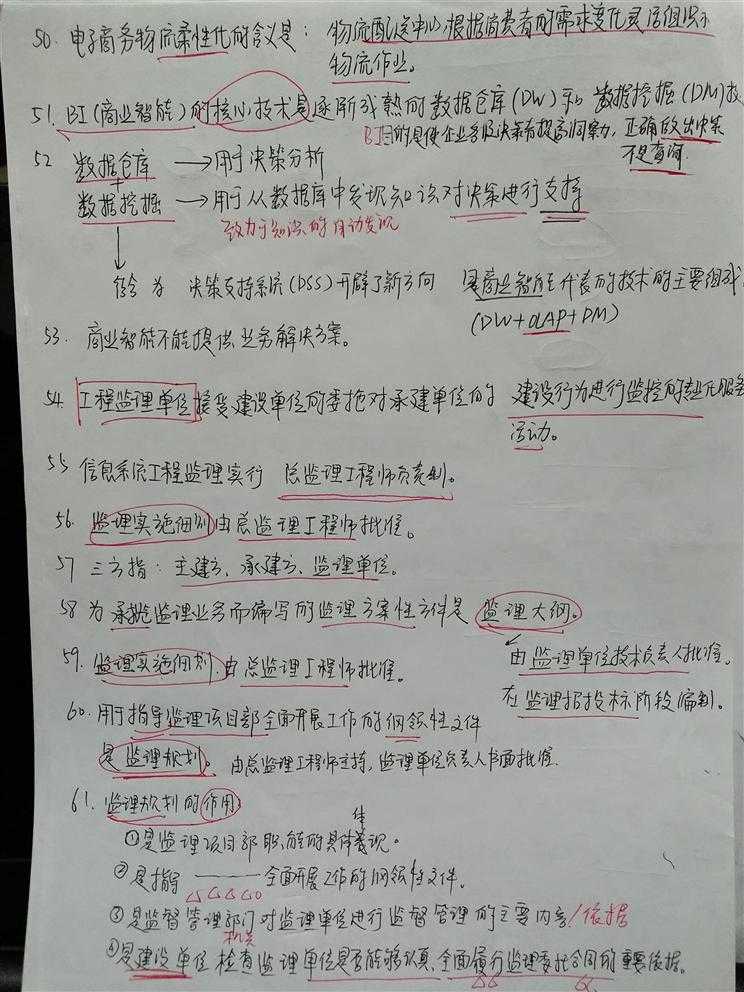 50. 电子商务物流柔性化的含义是：物流配送中心根据消费者的需求变化灵活组织
物流作业。
51. BI(商业智能)的核心技术是逐渐成熟的数据仓库(DW)和数据挖掘(DM)技
BI目的是使企业各级决策者提高洞察力，正确做出决策
不是查询.
52 数据仓库 → 用于决策分析
+
数据挖掘 → 用于从数据库中发现知识对决策进行支持
致力于知识的自动发现
结合 为 决策支持系统(DSS)开辟了新方向 是商业智能代表的技术的主要组成
(DW+OLAP+DM)
53. 商业智能不能提供业务解决方案。
54. 工程监理单位接受建设单位的委托对承建单位的 建设行为进行监控的专业化服务
活动。
55 信息系统工程监理实行 总监理工程师负责制。
56. 监理实施细则由总监理工程师批准。
57 三方指：主建方、承建方、监理单位。
58 为承揽监理业务而编写的监理方案性文件是 监理大纲。
由监理单位技术负责人批准。
59. 监理实施细则.由总监理工程师批准。
在监理招投标阶段编制。
60. 用于指导监理项目部全面开展工作的纲领性文件
是监理规划。 由总监理工程师主持，监理单位负责人书面批准.
61. 监理规划的作用
①是监理项目部职能的具体体现。
②是指导 ———— 全面开展工作的纲领性文件。
③是监督管理部门对监理单位进行监督管理的主要内容/依据
机关
④是建设单位检查监理单位是否能够认真、全面履行监理委托合同的重要依据。